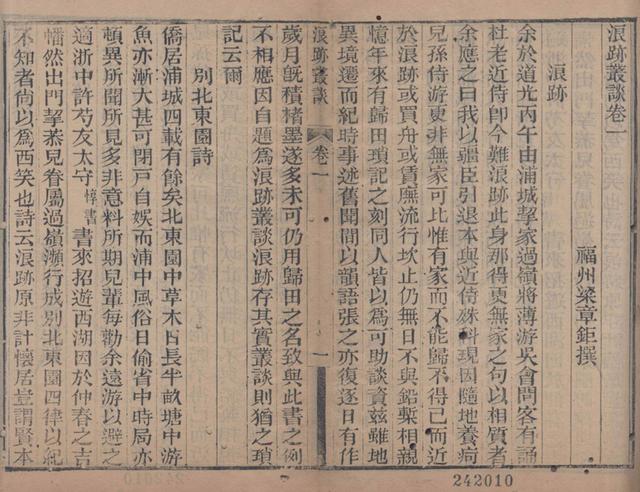 浪跡叢談卷一
福州梁章鉅撰
浪跡
余於道光丙午由浦城挈家過嶺將薄游吳會問客有誦
杜老近侍卽今難浪跡此身那得更無家之句以相質者
余應之曰我以疆臣引退本與近侍殊科現因隨地養疴
兒孫侍游更非無家可比惟有家而不能歸不得已而近
於浪跡或買舟或賃廡流行坎止仍無日不與鉛槧相親
憶年來有歸田瑣記之刻同人皆以爲可助談資茲雖地
異境遷而紀時事述舊聞間以韻語張之亦復逐日有作
浪跡叢談
卷一
一
歲月旣積楮墨遂多未可仍用歸田之名致與此書之例
不相應因自題爲浪跡叢談浪跡存其實叢談則猶之瑣
記云爾
別北東園詩
僑居浦城四載有餘矣北東園中草木日長半畝塘中游
魚亦漸大甚可閉戸自娱而浦中風俗日偷省中時局亦
頓異所聞所見多非意料所期兒輩每勸余遠游以避之
適浙中許芍友太守惇書書來招遊西湖因於仲春之吉
幡然出門挈眷屬過嶺瀕行成別北東園四律以紀
不知者尙以爲西笑也詩云浪跡原非計懷居豈謂賢本
242010